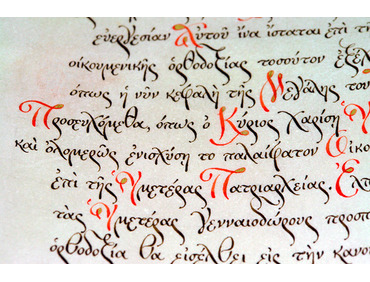 εὐεργεσίαν Αὐτοῦ ἵνα ἵσταται ἐπὶ τῆ
οἰκουμενικῆς ὀρθοδοξίας τοσοῦτον
ὅπως ἡ νῦν κεφαλὴ τῆς Μεγάλης τοῦ
Προσευχόμεθα, ὅπως ὁ Κύριος χαρίσῃ
καὶ ὁλομερῶς ἐνισχύσῃ τὸ παλαίφατον Οἰκο
ἐπὶ τῆς Ὑμετέρας Πατριαρχείας.
τὰς Ὑμετέρας γενναιοδώρους προσπ
ὀρθοδοξία θὰ εἰσέλθει εἰς τὴν κανο